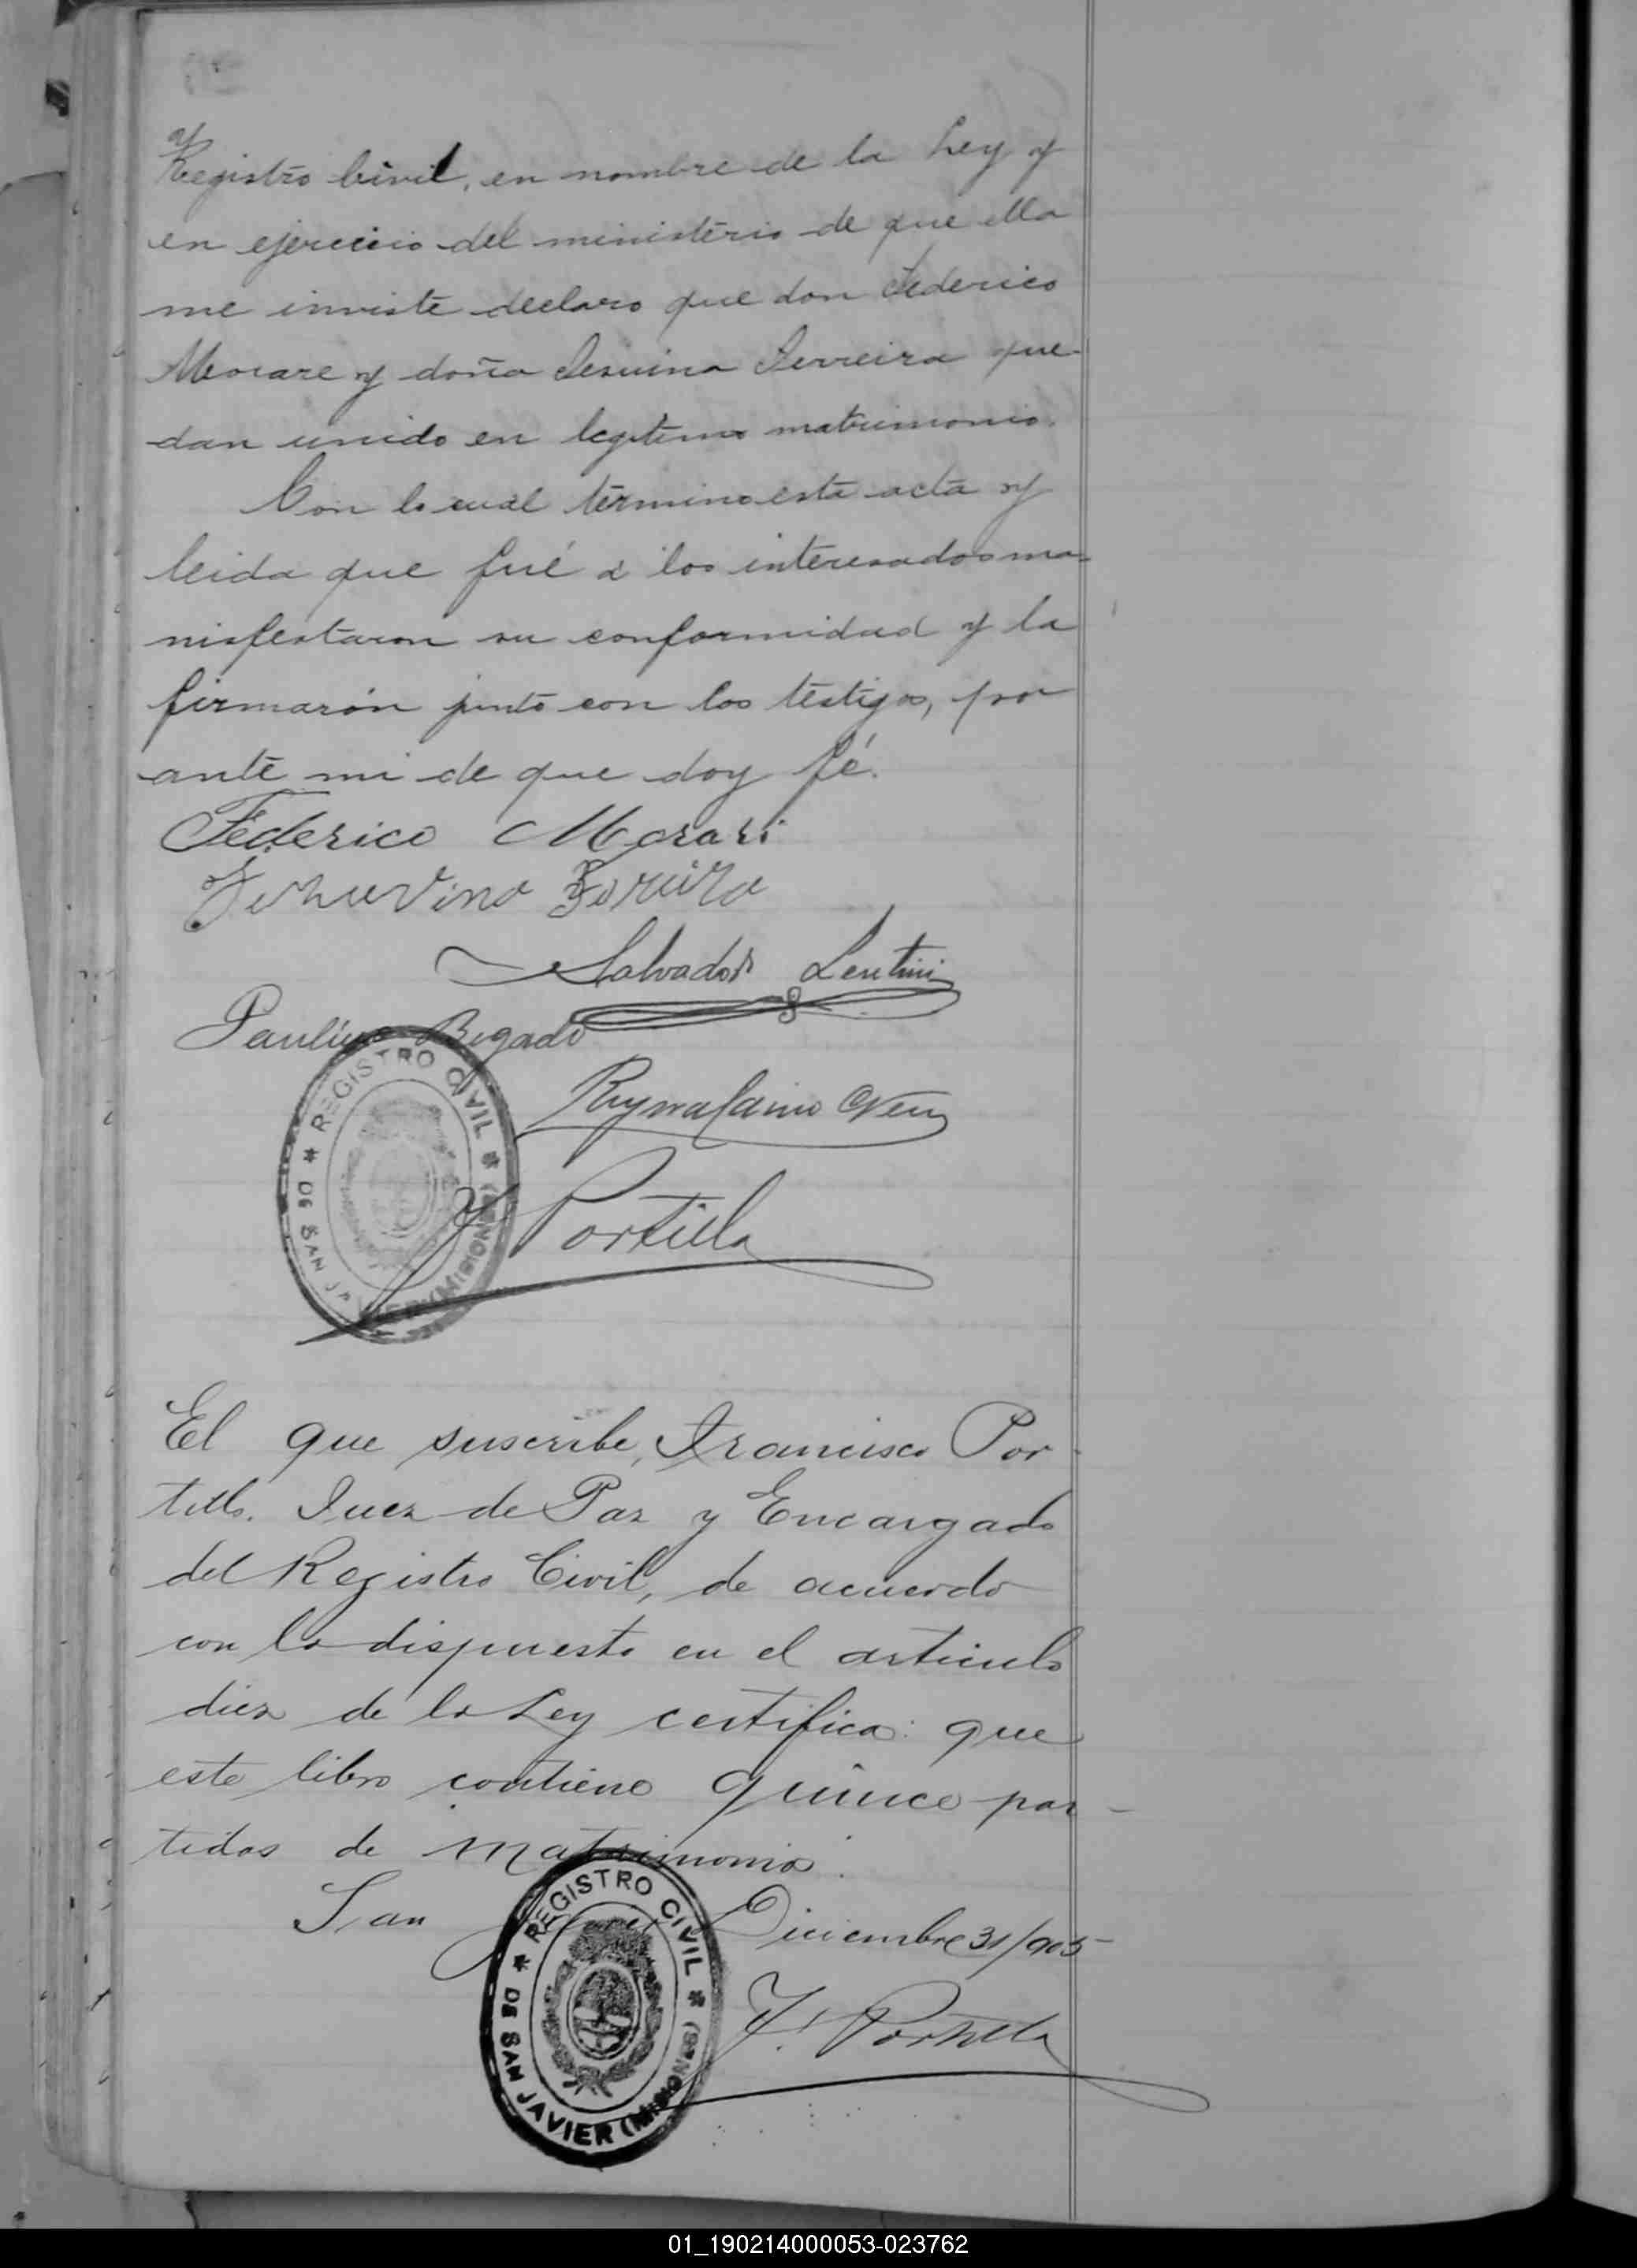 y
Registro Civil, en nombre de la Ley y
en ejercicio del ministerio de que ella
me inviste declaro que don Federico
Morare y doña Jesuina Ferreira que-
dan unido en legitimo matrimonio.
Con lo cual termino esta acta y
leida que fué á los interesados ma-
nisfestaron su conformidad y la
firmarón junto con los testigos, por
ante mi de que doy fé.
Federico Morari
Ferreira
Salvador Lentini
Paulino Bogado
F Portillo
REGISTRO CIVIL * DE SAN JAVIER (MISIONES) *
El que suscribe, Francisco Por-
tillo. Juez de Paz y Encargado
del Registro Civil, de acuerdo
con lo dispuesto en el articulo
diez de la Ley certifica: que
este libro contiene quince par-
tidas de matrimonio.
San Javier Diciembre 31/905
F. Portillo
REGISTRO CIVIL * DE SAN JAVIER (MISIONES) *
01_190214000053-023762